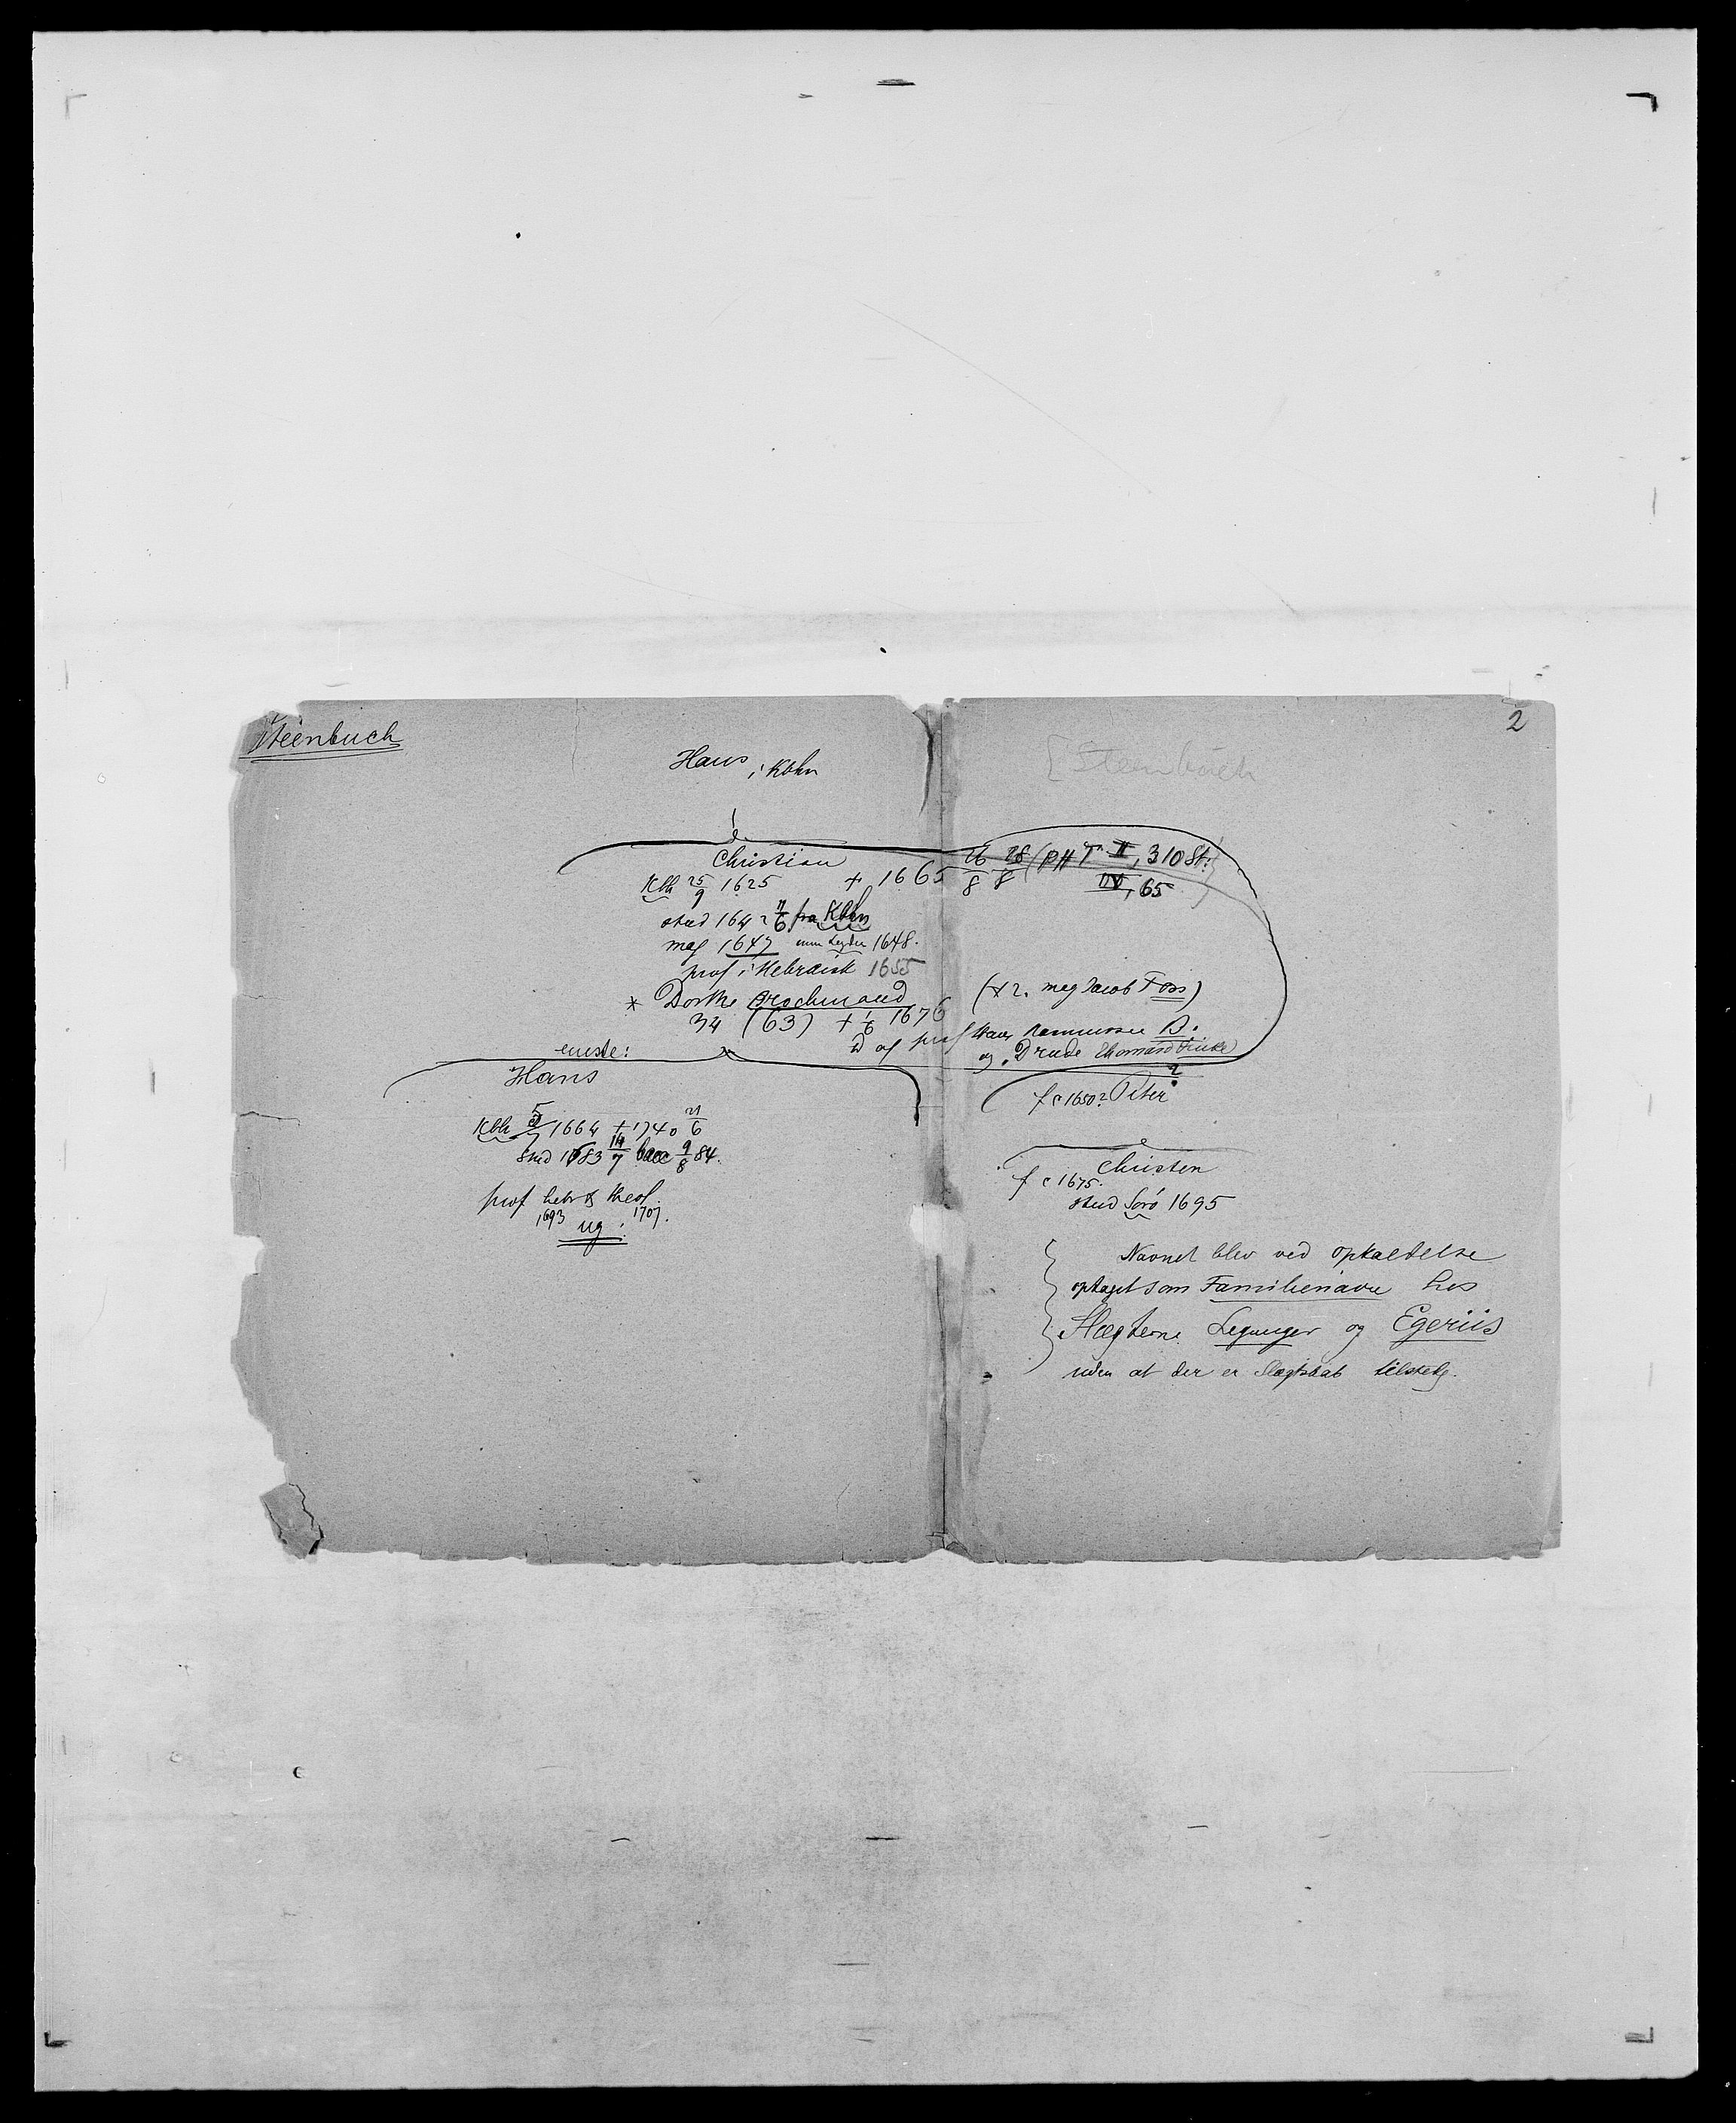 Steenbuch
2
Hans i Kbhn
[Steenbuch
Christian
Kbh 25/9 1625 + 1665 26/8 28/8 (PHT II, 310 St:
IV, 65
stud 1642 11/6 fra Kbhn
mag 1647 imm Leyden 1648.
prof i Hebraisk 1655
* Dorthe Brochmand (* 2. mag Jacob Foss)
34 (63) + 1/6 1676
D af prof Hans Rasmussen B.
og Drude Thomasd Fincke)
eneste:
Hans
Kbh 5/7 1664 + 1740 21/6
stud 1683 14/7 bacc 9/8 84.
prof hebr & theol.
1693 1707.
ug:
?
f c 1650? Peter
Christen
f c 1675.
stud Sorø 1695
Navnet blev ved opkaldelse
optaget som Familienavn hos
Slægterne og Egeriis
uden at der er Slægtskab tilstede.